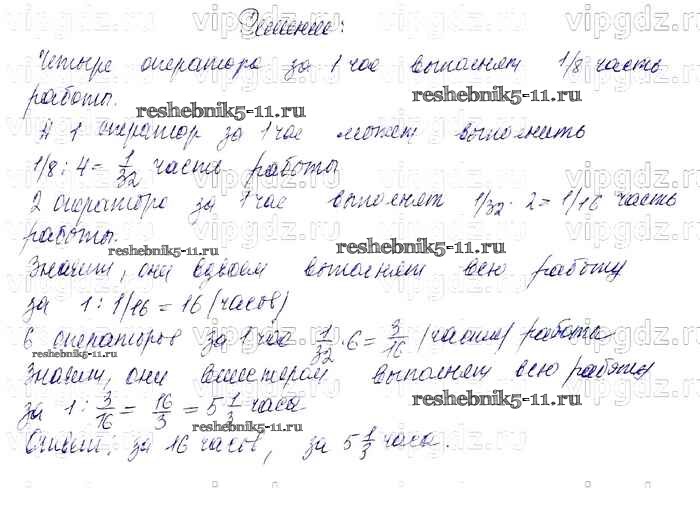 Решение:
Четыре оператора за 1 час выполняют 1/8 часть
работы.
А 1 оператор за 1 час может выполнить
1/8 : 4 = 1/32 часть работы
2 оператора за 1 час выполнят 1/32 · 2 = 1/16 часть
работы.
Значит, они вдвоем выполняют всю работу
за 1 : 1/16 = 16 (часов)
6 операторов за 1 час 1/32 · 6 = 3/16 (части) работы
Значит, они вшестером выполнят всю работу
за 1 : 3/16 = 16/3 = 5 1/3 часа
Ответ: за 16 часов, за 5 1/3 часа.
vipgdz.ru vipgdz.ru vipgdz.ru
reshebnik5-11.ru reshebnik5-11.ru
reshebnik5-11.ru reshebnik5-11.ru
reshebnik5-11.ru reshebnik5-11.ru
reshebnik5-11.ru